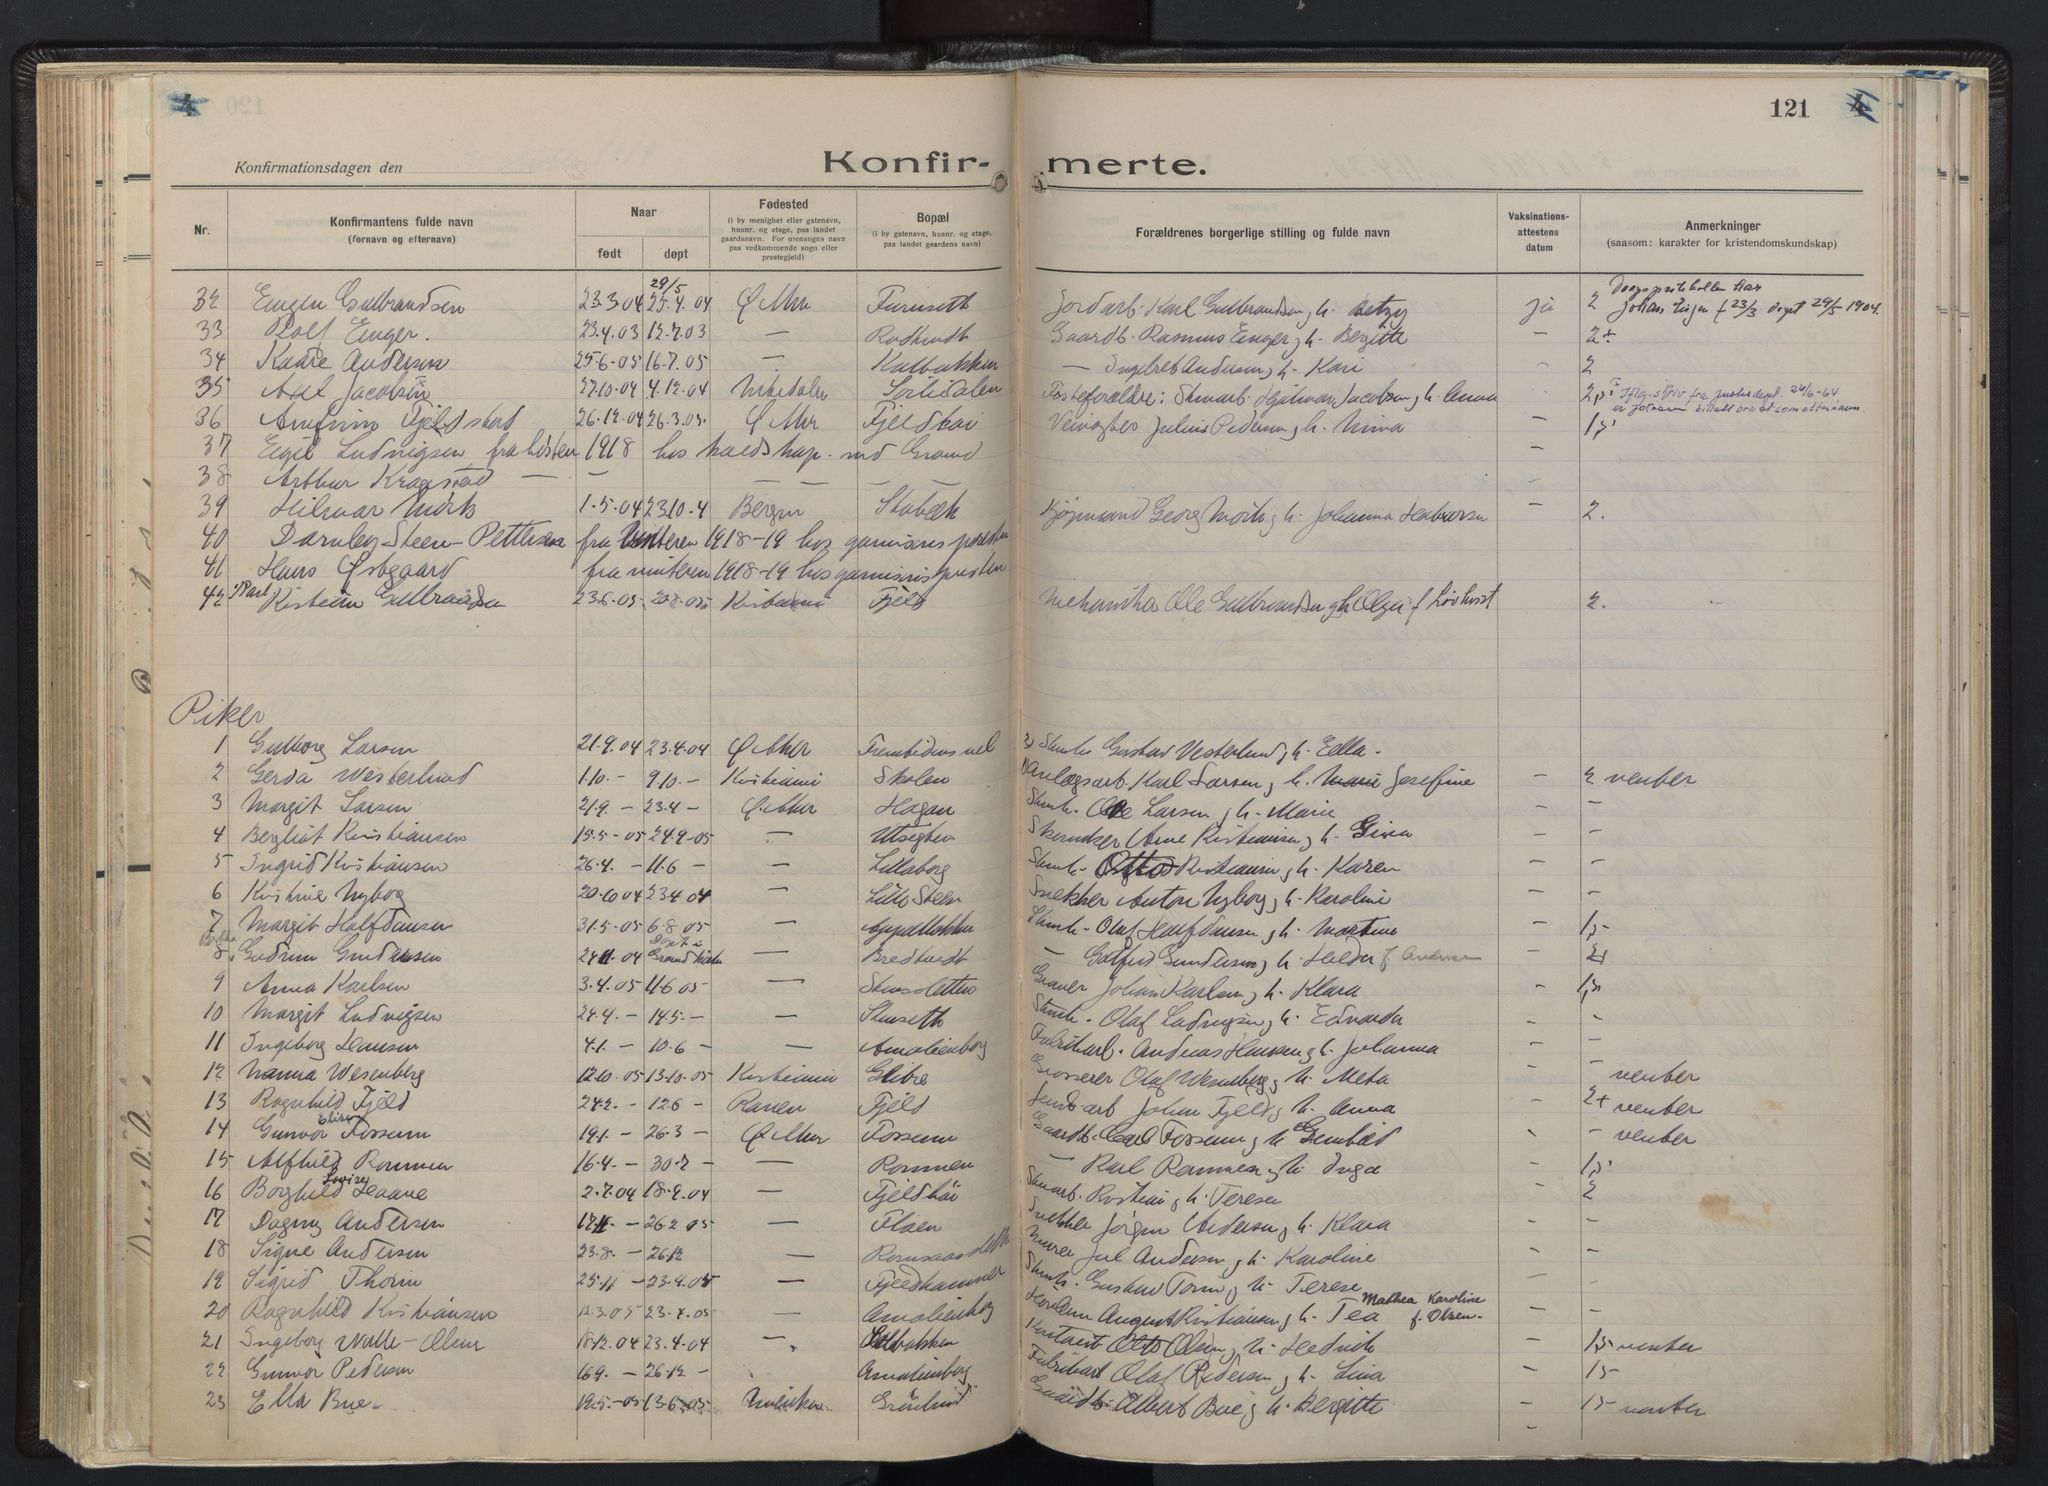 121
Konfirmationsdagen den
Konfir- merte.
Nr.
Konfirmantens fulde navn
(fornavn og efternavn)
Naar
født
døpt
Fødested
(i by menighet eller gatenavn,
husnr. og etage, paa landet
gaardsnavn. For utensogns navn
paa vedkommende sogn eller
prestegjeld)
Bopæl
(i by gatenavn, husnr. og etage,
paa landet gaardens navn)
Forældrenes borgerlige stilling og fulde navn
Vaksinations-
attestens
datum
Anmerkninger
(saasom: karakter for kristendomskundskap)
29/5
32 Eugen Gulbrandsen 23.3.04 25.4.04 Ø Aker Furuseth Jordarb. Karl Gulbrandsen, h. Betzy ja 2
Johan Eugen f 23/3 døpt 29/5 1904.
33 Rolf Enger. 23.4.03 12.7.03 — Rødtvedt Gaardb. Rasmus Enger, h. Bergitte — 2+
34 Kaare Andersen 25-6-05 16.7.05 — Kalbakken — Ingebret Andersen, h. Kari — 2
35 Axel Jacobsen 27.10.04 4.12.04 Sørlidalen Fosterforældre: Stenarb. Hjalmar Jacobsen, h. Anna
36 Arnfinn Fjeldstad 26.12.04 26.3.05. Ø Aker Veivogter Julius Pedersen, h. Mina —
37 Egil Ludvigsen fra høsten 1918 —
38 Arthur Kragstad — — — — —
39 Hilmar Mörk 1.5.04 23.10.4 Bergen Stabæk Kjøpmand Georg Mörk, h. Johanna — 2.
40 Darnley Steen-Pettersen fra Vinteren 1918-19 hos garnisonspresten
41 Hans Østgaard fra vinteren 1918-19 hos garnisonspresten
42 Paul Kristian Gulbrandsen 23.6.05 20.8.05 Kristiania Fjeld Mekaniker Ole Gulbrandsen, h. Olga f Løvkvist 2.
Piker
1 Gulborg Larsen 21.9.04 23.4.04 Ø Aker Fremtidens vel Stenh. Gustav Vesterlund, h. Ella.
2 Gerda Westerlund 1.10.- 9.10.- Kristiania Skolen Anlægsarb. Karl Larsen, h. Marie Josefine — 2 venter
3 Margit Larsen 21.9. - 23.4 - Ø. Aker Hagan Stenh. Ole Larsen, h. Marie — —
4 Bergliot Kristiansen 15.5-05 24.9-05 — Utsigten Arne Kristiansen, h. Gina — —
5 Ingrid Kristiansen 26.4. - 11.6 - — Lillaborg Stenh. Otto Kristiansen, h. Karen — —
6 Kristine Nyborg 20.10 04 23 4 04 — Lille Steen Snekker Anton Nyborg, h. Karoline — —
7 Margit Halfdansen 31.5-05 6.8 05 — Stenh. Olaf Halfdansen, h. Martine — 1,5
8 Gudrun Gundersen 24.11.04 Døpt i — Bredtvedt — Gotfred Gundersen, h. Hilda f Andersen —
9 Anna Karlsen 3.4.05 11.6 05 — Stensletten Graver Johan Karlsen, h. Klara — 1,5
10 Margit Ludvigsen 24.4. - 14.5. - — Stenseth Stenh. Olaf Ludvigsen, h. Edvarda — —
11 Ingeborg Hansen 4.1. - 10.6 - — Amalienborg Fabrikarb. Andreas Hansen, h. Johanna — —
12 Nanna Wesenberg 12.10.05 13.10.05 Kristiania Grosserer Olaf Wesenberg, h. Meta — venter
13 Ragnhild Fjeld 24.2. - 12.6 - Ranen Fjeld Johan Fjeld, h. Anna — 2+ venter
14 Gunvor Fossum 19.1. - 26.3 - Ø Aker Fossum Gaardb. Carl Fossum, h. — — venter
15 Alfhild Rommen 16.4. - 30.7 - — Rommen — Karl Rommen, h. Inga — 1,5
16 Borghild Lovise Haave 2.7.04 18.9.04 — Stenarb. Kristian, h. Terese — 2
17 Dagny Andersen 17.11. - 26.2 05 — Snekker Jørgen Andersen, h. Klara — —
18 Signe Andersen 23.8. - 26.12 — Murer Jul Andersen, h. Karoline — —
19 Sigrid Thorin 25.11 - 23.4.05 — Fjeldhammer Stenh. Gustav Torin, h. Terese — —
20 Ragnhild Kristiansen 12.3.05 23.4.05 Amalienborg August Kristiansen, h. Tea Mathea Karoline f. Olsen- — —
21 Ingeborg Walle-Olsen 18.12.04 23.4.04 — Kalbakken Otto Olsen, h. Hedvik — 1,5 venter
22 Gunvor Pedersen 16.9. - 26.12 - Amalienborg Fabrikarb Olaf Pedersen, h. Lina — 1,5
23 Ella Bue. 19.5.-05 13.6.05 Amerika Grønlund Gaardb. Albert Bue, h. Bergitte — 1,5 venter